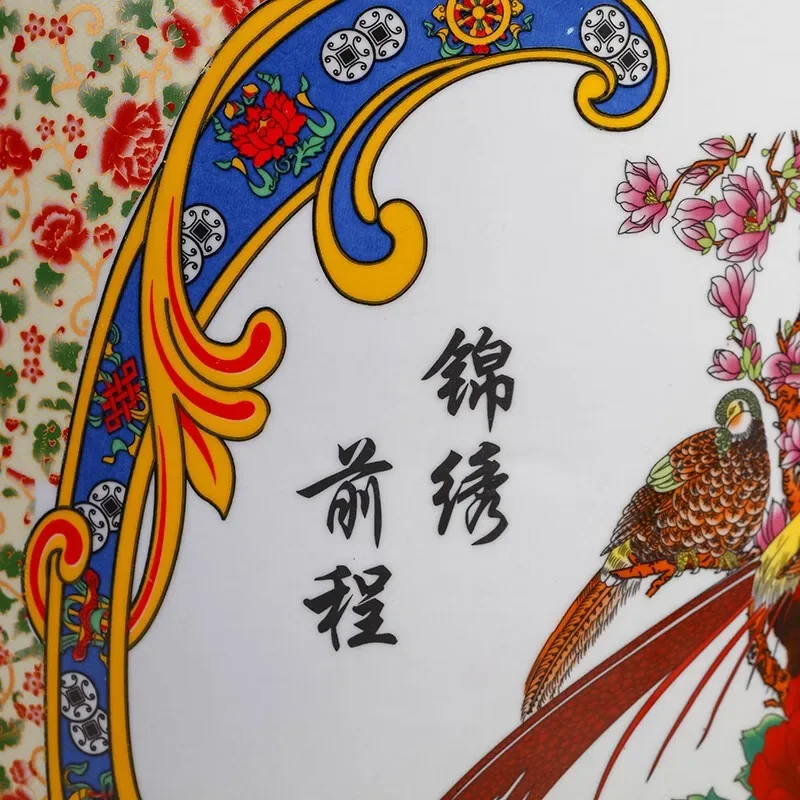 锦绣
前程